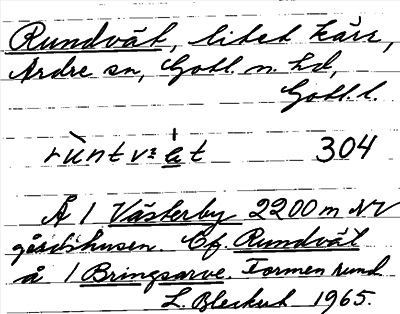 Rundvät, litet kärr,
Ardre sn, Gotl. n. hd,
Gotl. l.
304
Å 1 Västerby 2200 m NV
gårdshusen. Cf. Rundvät
å 1 Bringsarve. Formen rund
L. Bleckert 1965.